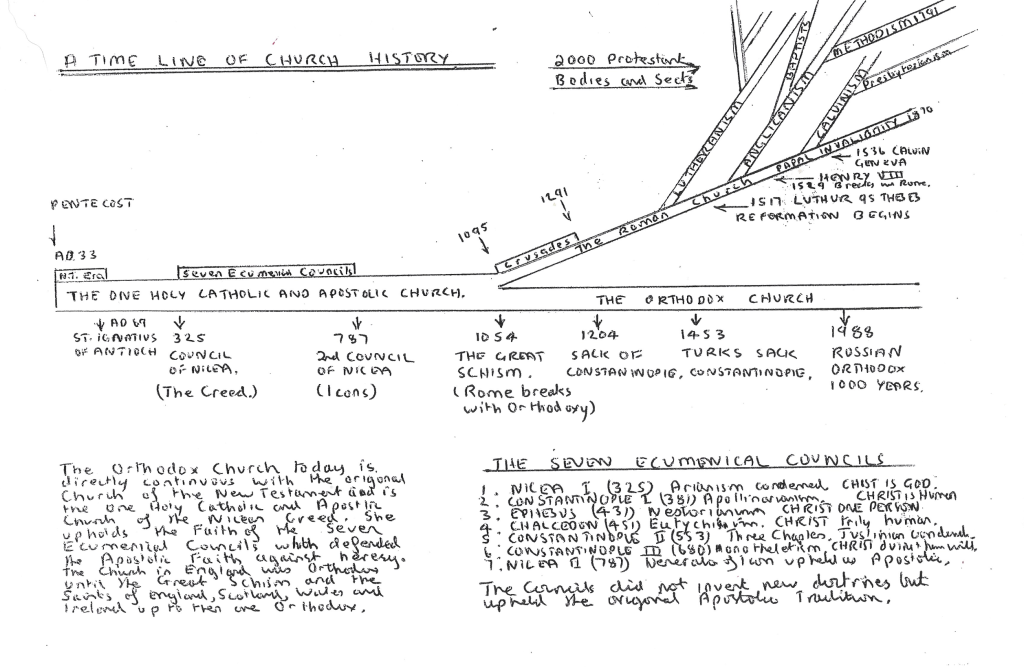 A TIME LINE OF CHURCH HISTORY
2000 Protestant
Bodies and Sects
LUTHERANISM
BAPTISTS
ANGLICANISM
METHODISM 1791
Presbyterianism
CALVINISM
The Roman Church PAPAL INVALIBNITY 1870
1536 CALVIN
GENEVA
HENRY VIII
1529 Breaks with Rome.
1517 LUTHUR 95 THESES
REFORMATION BEGINS
PENTECOST
AD.33
N.T. Era
Seven Ecumenical Councils
1095
1291
Crusades
THE ONE HOLY CATHOLIC AND APOSTOLIC CHURCH.
THE ORTHODOX CHURCH
AD 69
ST. IGNATIUS
OF ANTIOCH
325
COUNCIL
OF NICEA.
(The Creed.)
787
2nd COUNCIL
OF NICEA
(Icons)
1054
THE GREAT
SCHISM.
(Rome breaks
with Orthodoxy)
1204
SACK OF
CONSTANINOPLE,
1453
TURKS SACK
CONSTANTINOPLE,
1988
RUSSIAN
ORTHODOX
1000 YEARS.
The Orthodox Church today is
directly continuous with the origonal
Church of the New Testament and is
the One Holy Catholic and Apostlic
Church of the Nicean Creed. She
upholds the Faith of the Seven
Ecumenical Councils which defended
the Apostolic Faith against heresy.
The Church in England was Orthodox
until the Great Schism and the
Saints of England, Scotland, Wales and
Ireland up to then are Orthodox.
THE SEVEN ECUMENICAL COUNCILS
1. NICEA I (325) Arianism condemned CHIST IS GOD.
2. CONSTANTINOPLE I (381) Apollinarianism. CHRIST IS Human
3. EPHESUS (431) Nestorianism CHRIST ONE PERSON
4. CHALCEDON (451) Eutychism. CHRIST truly human.
5. CONSTANTINOPLE II (553) Three Chapters, Justinian condemd.
6. CONSTANTINOPLE III (680) Monothelitism, CHRIST divine + human will.
7. NICEA II (787) of Icon upheld as Apostolic.
The Councils did not invent new doctrines but
upheld the origonal Apostolic Tradition.